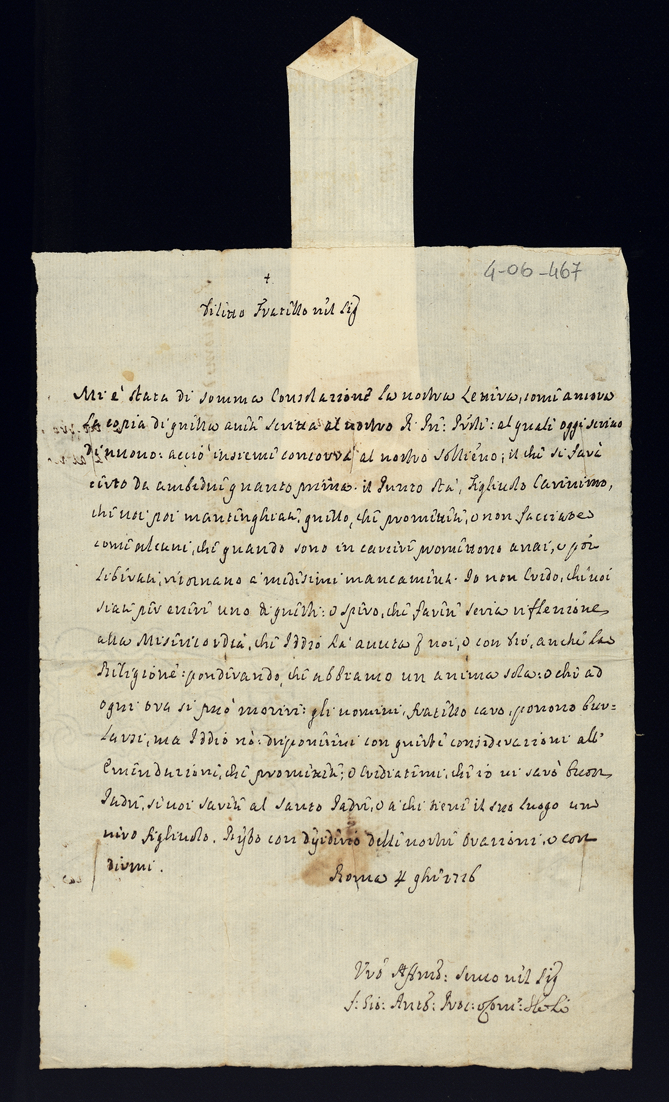 4-06-467
+
Diletto Fratello nel Sig
Mi è stata di somma Consolazione la vostra Lettera, come ancora
la copia di quella avete scritta al nostro R. Pri: al quale oggi scrivo
di nuovo: acciò insieme concorra al vostro sollievo; il che si farà
certo da ambedue quanto prima. il Punto sta, figliuolo Carissimo,
che voi poi mantenghiate, quello, che promettete, e non facciate
come alcuni, che quando sono in carcere promettono assai, e poi
liberati, ritornano a medesimi mancamenti. Io non Credo, che voi
siate per essere uno di questi: e spero, che farete seria riflessione
alla Misericordia, che Iddio ha avuta p voi, e con Lei, anche la
Religione: ponderando, che abbiamo un anima sola: e che ad
ogni ora si può morire: gli uomini, fratello caro, possono bur-
larsi, ma Iddio nò: disponetevi con queste considerazioni all'
Emendazione, che promettete; e Crediatemi, che io vi sarò buon
Padre, se voi sarete al Santo Padre, e a chi tiene il suo luogo un
vero figliuolo. Resto con desiderio delle vostre Orazioni, e con
dirmi.
Roma 4 9bre 1726
Vro Affmo: Servo nel Sig
f: Gio: Anto: